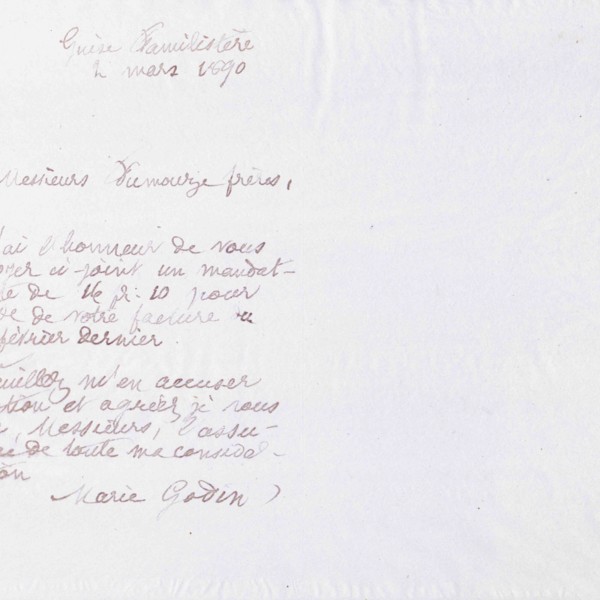 Guise Familistère
2 mars 1890
Messieurs Dumourze frères,
'ai l'honneur de vous
oyer ci-joint un mandat-
te de 16 fr: 10 pour
de de votre facture
février dernier.
euillez m'en accuser
ption et agréer je vous
, Messieurs, l'assu-
ce de toute ma considé-
on
Marie Godin